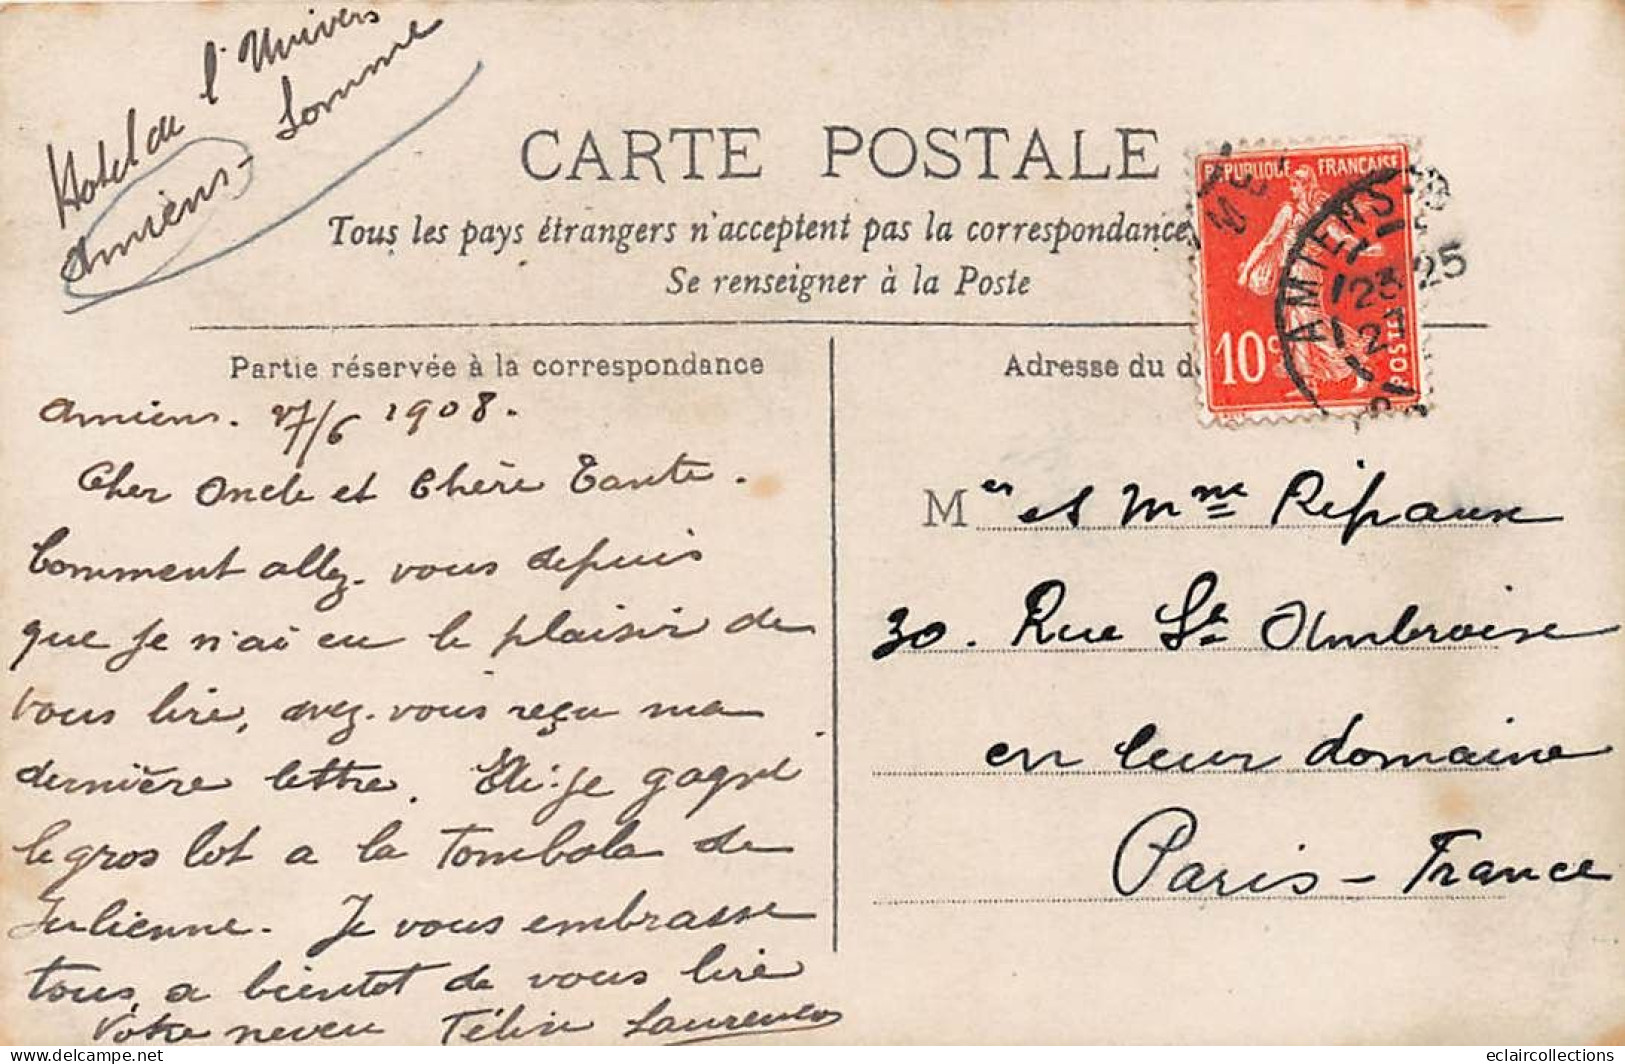 Hotel de l'Univers
Amiens - Somme
CARTE POSTALE
Tous les pays étrangers n'acceptent pas la correspondance
Se renseigner à la Poste
REPUBLIQUE FRANÇAISE
10c
POSTES
AMIENS
25
Partie réservée à la correspondance
Adresse du d
Amiens. 27/6 1908.
Cher Oncle et Chère Tante.
Comment allez-vous depuis
que je n'ai eu le plaisir de
vous lire, avez-vous reçu ma
dernière lettre.
le gros lot a la Tombola de
Julienne. Je vous embrasse
tous, a bientot de vous lire
Votre neveu
Mer et Mme Ripaux
30. Rue St Ambroise
en leur domaine
Paris - France
eclaircollections
delcampe.net